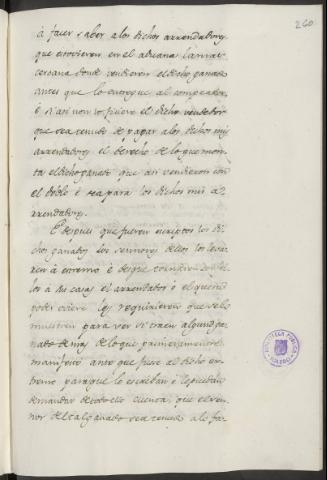 260
á facer saber a los dichos arrendadores
que estovieren en el aduana la mas
cercana donde vendieren el dicho ganado
antes que lo entregue al comprador,
é si asi non lo ficiere el dicho vendedor
que sea tenudo de pagar a los dichos mis
arrendadores el derecho de lo que mon
ta el dicho ganado que asi vendieron con
el doblo é sea para los dichos mis a-
rrendadores.
E despues que fueren escriptos los di
chos ganados los sennores dellos los
á estremo é desque tornaren con e-
llos á sus casas el arrendador ó el que su
poder oviere les requirieren que gelo
muestren para ver si traen algund ga-
nado de mas de lo que primeramente
manifestó ante que fuese al dicho es-
tremo para que lo escriban é le puedan
demandar de todo ello cuenta, que el sen-
nor del tal ganado sea tenudo a lo fa-